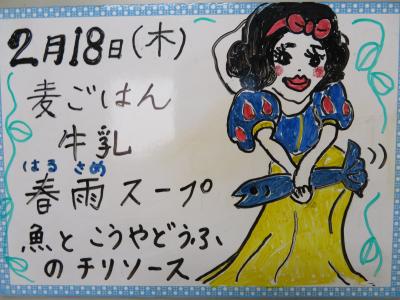 2月18日(木)
麦ごはん
牛乳
はる さめ
春雨スープ
魚と こうやどうふ
のチリソース